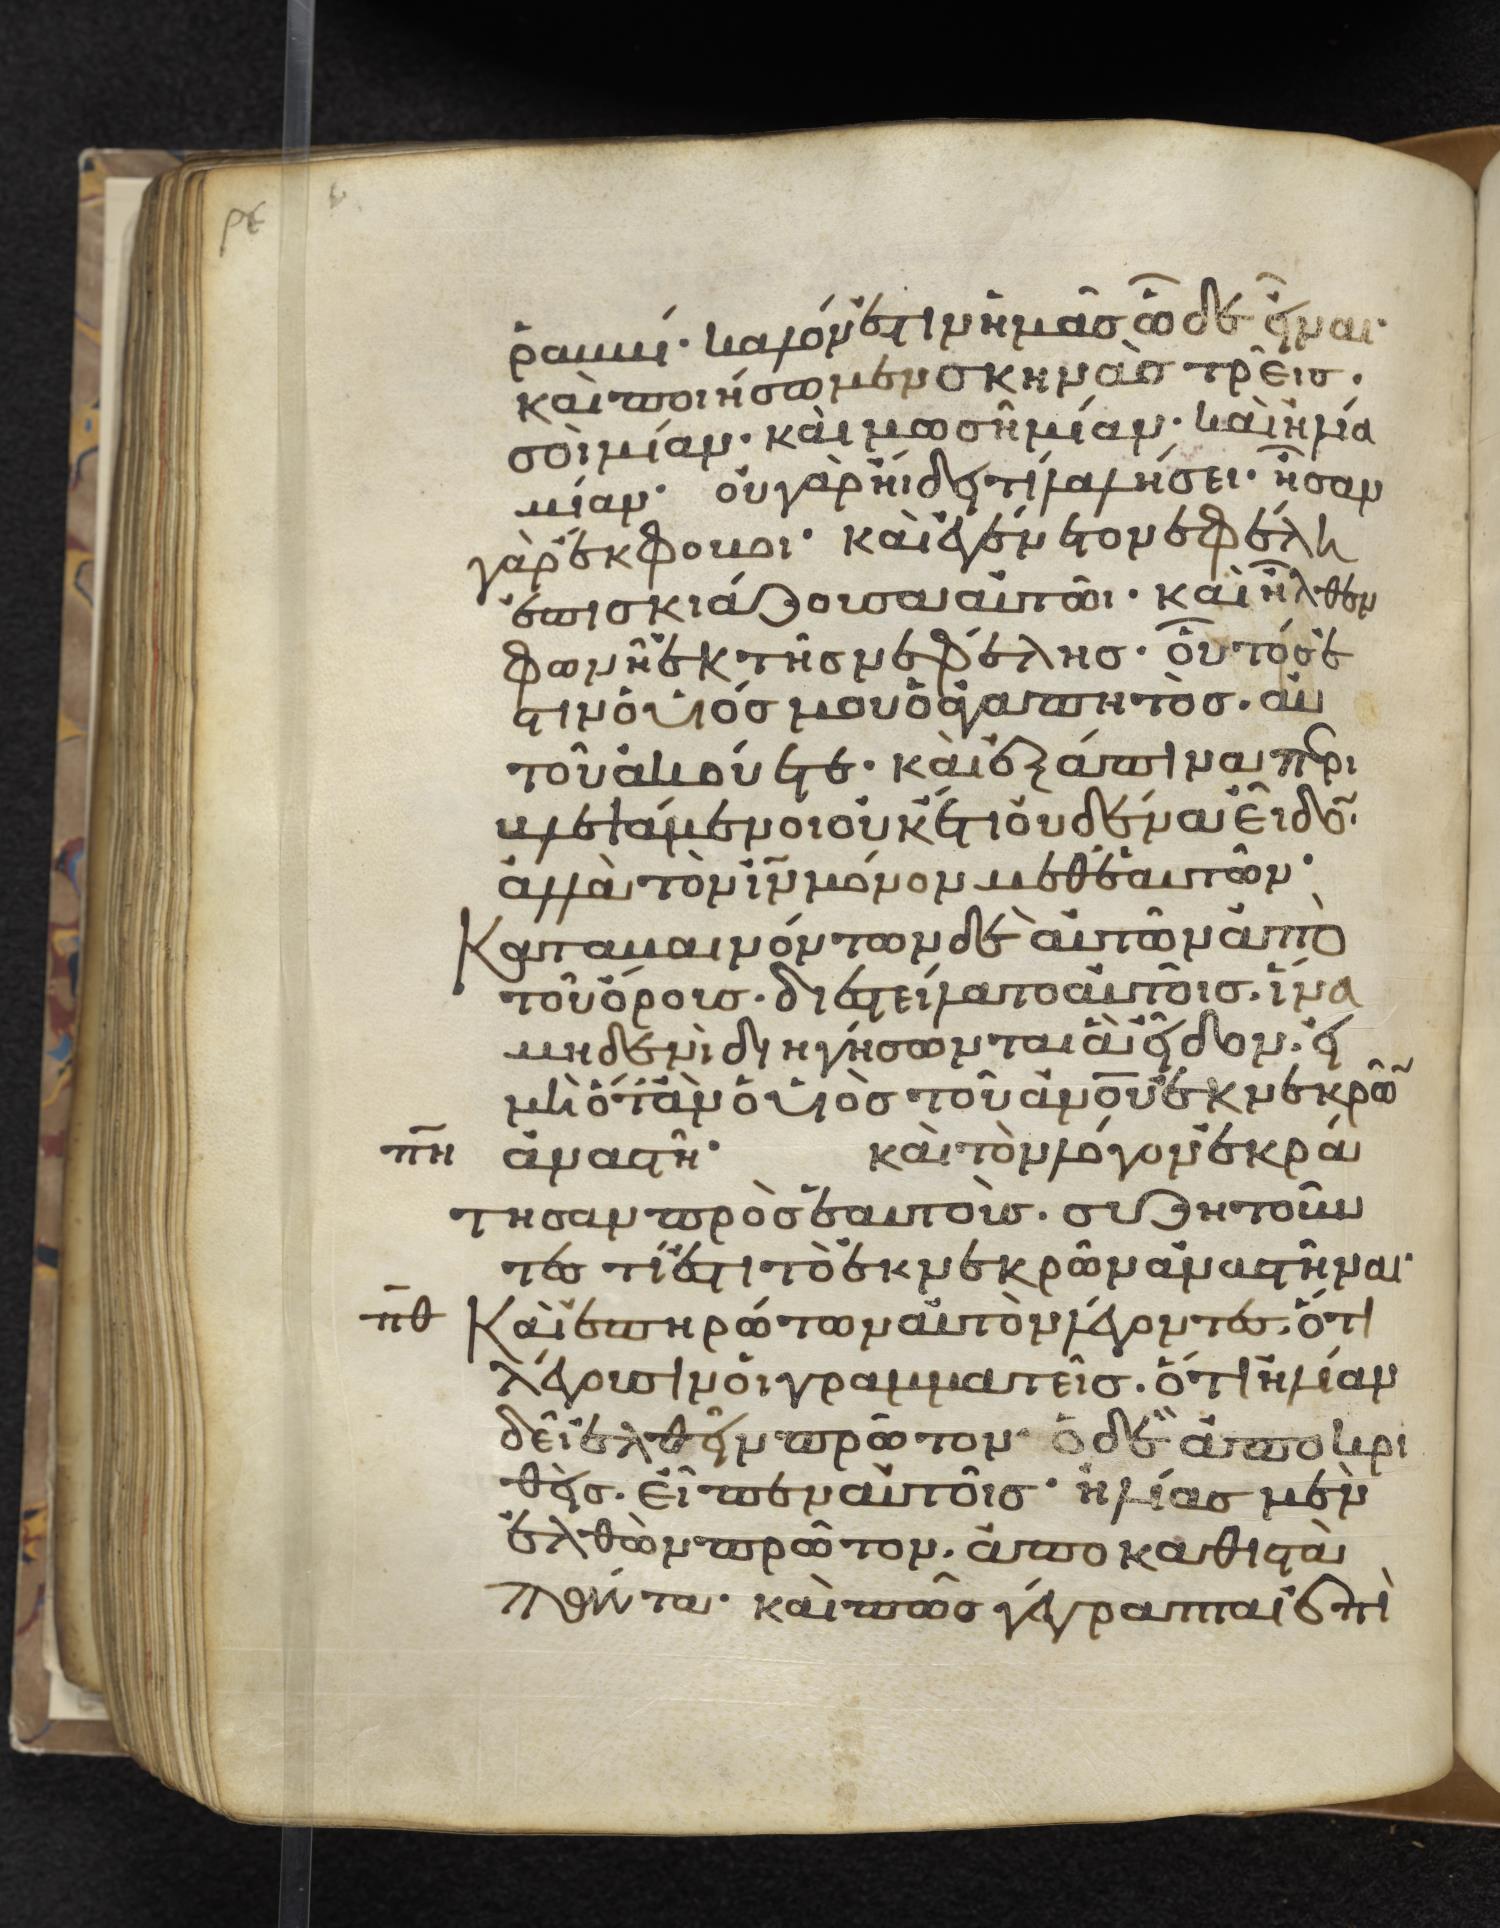 ρε
ῥαββί· καλόν ἐστιν ἡμᾶσ ὧδε εἶναι·
καὶ ποιήσωμεν σκηνὰσ τρεῖσ·
σοὶ μίαν· καὶ μωσῆ μίαν· καὶ ἡλία
μίαν· οὐ γὰρ ἤιδει τί λαλήσει· ἦσαν
γὰρ ἔκφοβοι· καὶ ἐγένετο νεφέλη
ἐπισκιάζουσα αὐτῶι· καὶ ἦλθεν
φωνὴ ἐκ τῆσ νεφέλησ· οὗτόσ ἐσ
τιν ὁ υἱόσ μου ὁ ἀγαπητὸσ· αὐ
τοῦ ἀκούετε· καὶ ἐξάπινα περι
βλεψάμενοι οὐκέτι οὐδένα εἶδον·
ἀλλὰ τὸν ιν μόνον μεθ' ἑαυτῶν·
Καταβαινόντων δὲ αὐτῶν ἀπὸ
τοῦ ὄρουσ· διεστείλατο αὐτοῖσ· ἵνα
μηδενὶ διηγήσωνται ἃ εἶδον· εἰ
μὴ ὅταν ὁ υἱὸσ τοῦ ανου ἐκ νεκρῶν
πη ἀναστῆ· καὶ τὸν λόγον ἐκρά
τησαν πρὸσ ἑαυτοὺσ· συζητοῦν
τεσ τί ἐστι τὸ ἐκ νεκρῶν ἀναστῆναι·
πθ Καὶ ἐπηρώτων αὐτὸν λέγοντεσ· ὅτι
λέγουσιν οἱ γραμματεῖσ· ὅτι ἡλίαν
δεῖ ἐλθεῖν πρῶτον· ὁ δὲ ἀποκρι
θεὶσ· εἶπεν αὐτοῖσ· ἡλίασ μὲν
ἐλθὼν πρῶτον· ἀποκαθιστᾶ
πάντα· καὶ πῶσ γέγραπται ἐπὶ